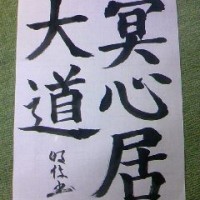 冥心居
大道